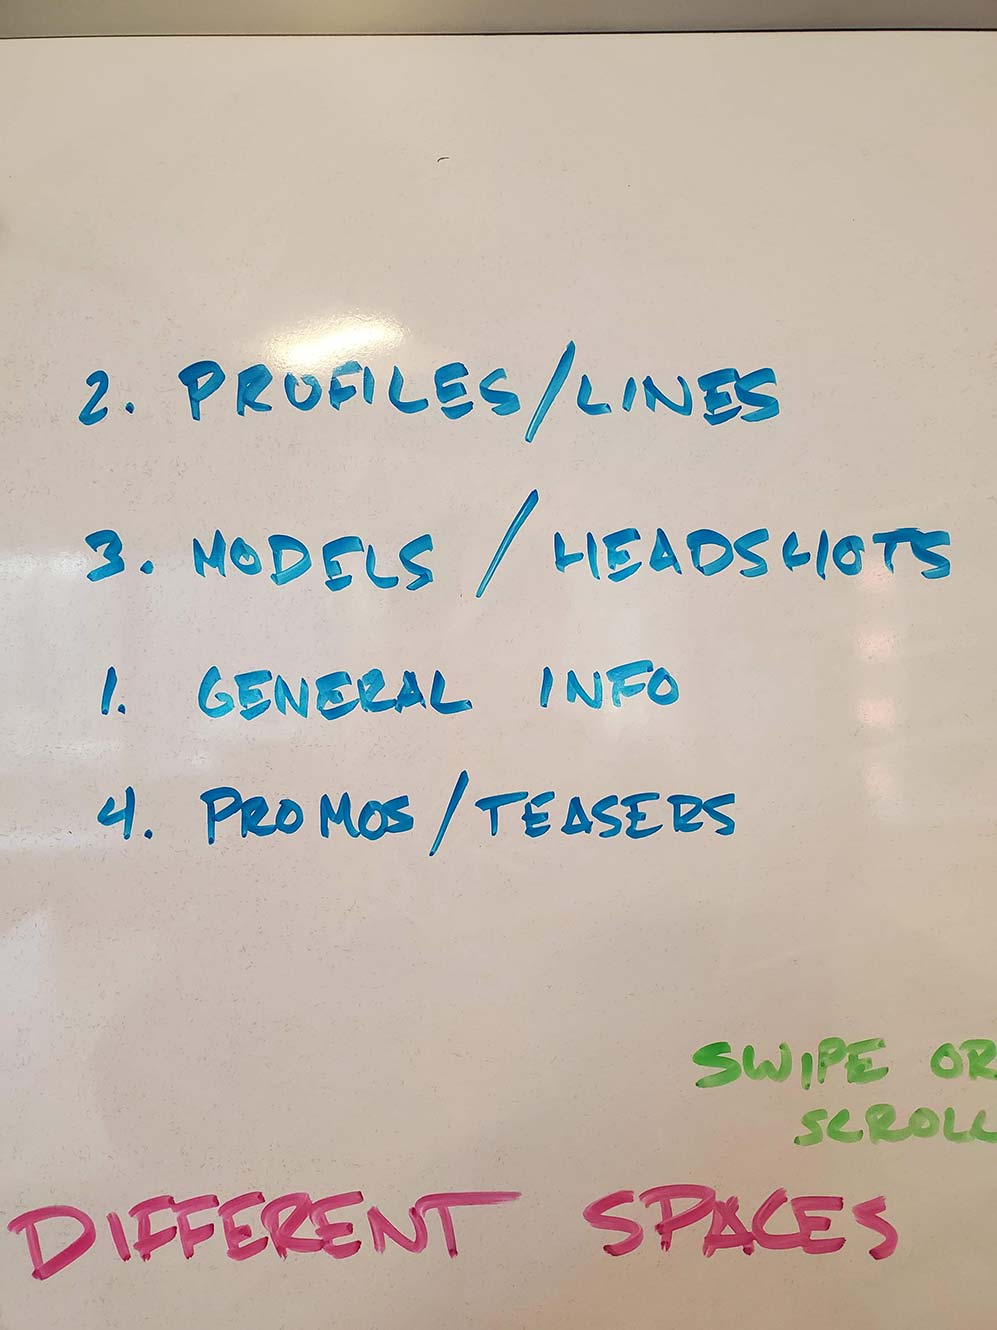 2. PROFILES/LINES
3. MODELS / HEADSHOTS
1. GENERAL INFO
4. PROMOS/TEASERS
SWIPE OR
SCROLL
DIFFERENT SPACES